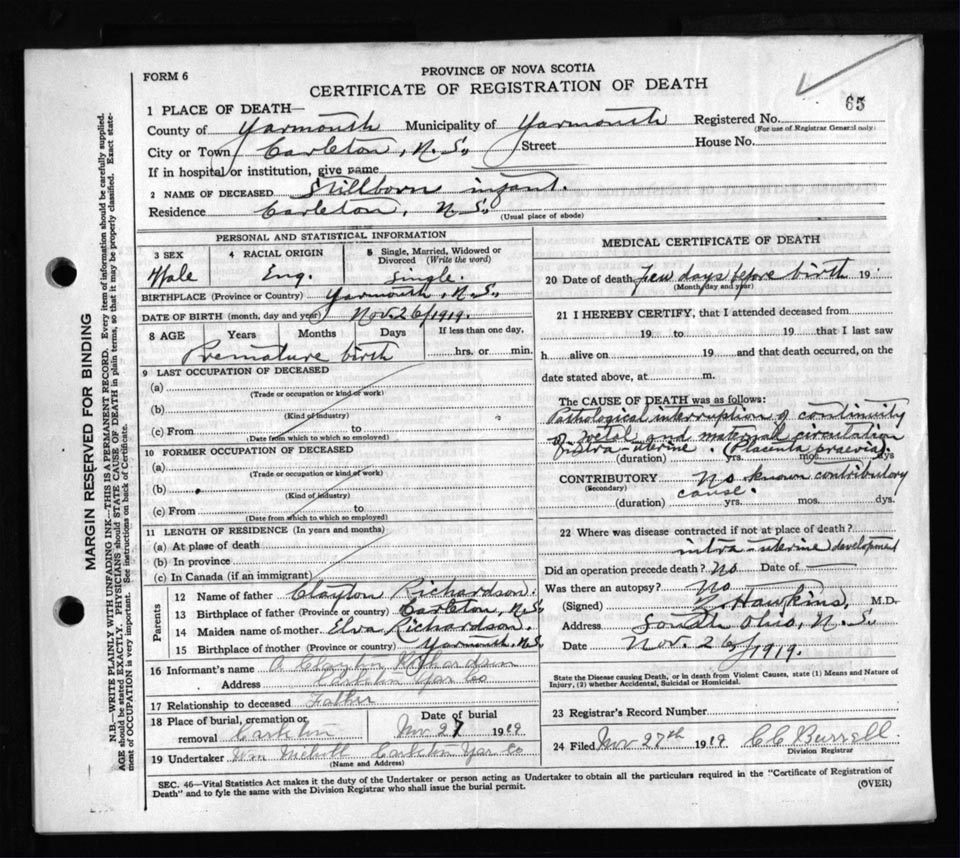 PROVINCE OF NOVA SCOTIA
FORM 6
CERTIFICATE OF REGISTRATION OF DEATH
65
1 PLACE OF DEATH—
County of Yarmouth Municipality of Yarmouth Registered No.
(For use of Registrar General only)
City or Town Carleton, N.S. Street House No.
If in hospital or institution, give name
2 NAME OF DECEASED Stillborn infant.
Residence Carleton, N.S.
(Usual place of abode)
PERSONAL AND STATISTICAL INFORMATION
3 SEX 4 RACIAL ORIGIN 5 Single, Married, Widowed or Divorced (Write the word)
Male Eng. Single.
BIRTHPLACE (Province or Country) Yarmouth, N.S.
DATE OF BIRTH (month, day and year) Nov. 26/1919.
8 AGE Years Months Days If less than one day,
Premature birth hrs. or min.
9 LAST OCCUPATION OF DECEASED
(a)
(Trade or occupation or kind of work)
(b)
(Kind of industry)
(c) From to
(Date from which to which so employed)
10 FORMER OCCUPATION OF DECEASED
(a)
(Trade or occupation or kind of work)
(b)
(Kind of industry)
(c) From to
(Date from which to which so employed)
11 LENGTH OF RESIDENCE (In years and months)
(a) At place of death
(b) In province
(c) In Canada (if an immigrant)
Parents
12 Name of father Clayton Richardson.
13 Birthplace of father (Province or country) Carleton, N.S.
14 Maiden name of mother Elva Richardson.
15 Birthplace of mother (Province or country) Yarmouth, N.S.
16 Informant's name Clayton Richardson
Address Carleton Yar Co
17 Relationship to deceased Father
18 Place of burial, cremation or removal Carleton Date of burial Nov 27 1919
19 Undertaker Wm Carleton Yar Co
(Name and Address)
MEDICAL CERTIFICATE OF DEATH
20 Date of death few days before birth 191
(Month, day and year)
21 I HEREBY CERTIFY, that I attended deceased from
19 to 19 that I last saw
h alive on 19 and that death occurred, on the
date stated above, at m.
The CAUSE OF DEATH was as follows:
Pathological interruption of continuity
of foetal and maternal circulation
intra-uterine. (Placenta praevia)
(duration) yrs. mos. dys
CONTRIBUTORY No known contributory
(Secondary) cause.
(duration) yrs. mos. dys.
22 Where was disease contracted if not at place of death?
intra-uterine development
Did an operation precede death? No Date of —
Was there an autopsy? No
(Signed) Hawkins, M.D.
Address South Ohio, N.S.
Date Nov. 26/1919.
State the Disease causing Death, or in death from Violent Causes, state (1) Means and Nature of
Injury, (2) whether Accidental, Suicidal or Homicidal.
23 Registrar's Record Number
24 Filed Nov 27th 1919 C C Burrell.
Division Registrar
SEC. 46—Vital Statistics Act makes it the duty of the Undertaker or person acting as Undertaker to obtain all the particulars required in the "Certificate of Registration of
Death" and to fyle the same with the Division Registrar who shall issue the burial permit.
(OVER)
MARGIN RESERVED FOR BINDING
N.B.—WRITE PLAINLY WITH UNFADING INK—THIS IS A PERMANENT RECORD. Every item of information should be carefully supplied.
AGE should be stated EXACTLY. PHYSICIANS should STATE CAUSE OF DEATH in plain terms, so that it may be properly classified. Exact state-
ment of OCCUPATION is very important. See instructions on back of Certificate.